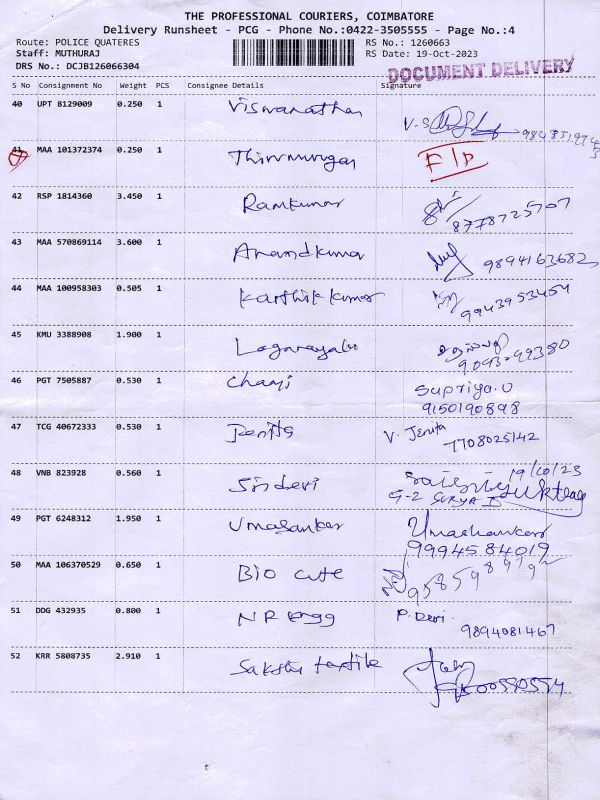 THE PROFESSIONAL COURIERS, COIMBATORE
Delivery Runsheet - PCG - Phone No.:0422-3505555 - Page No.:4
Route: POLICE QUATERES RS No.: 1260663
Staff: MUTHURAJ RS Date: 19-Oct-2023
DRS No.: DCJB126066304 DOCUMENT DELIVERY
S No Consignment No Weight PCS Consignee Details Signature
40 UPT 8129009 0.250 1 Viswanathan V.S
41 MAA 101372374 0.250 1 Thirumurugan F/D
42 RSP 1814360 3.450 1 Ramkumar 8778725707
43 MAA 570869114 3.600 1 Anandkumar 9894163682
44 MAA 100958303 0.505 1 Karthik kumar 9943953454
45 KMU 3388908 1.900 1
46 PGT 7505887 0.530 1 Supriya.U
9150190898
47 TCG 40672333 0.530 1 V. Jenita 7708025142
48 VNB 823928 0.560 1 Sri devi 19/10/23
G-2 SURYA
49 PGT 6248312 1.950 1 Umasankar Umashankar
9994584019
50 MAA 106370529 0.650 1 Bio cute
51 DDG 432935 0.800 1 N R P. Devi
9894081467
52 KRR 5808735 2.910 1 Sakthi textile